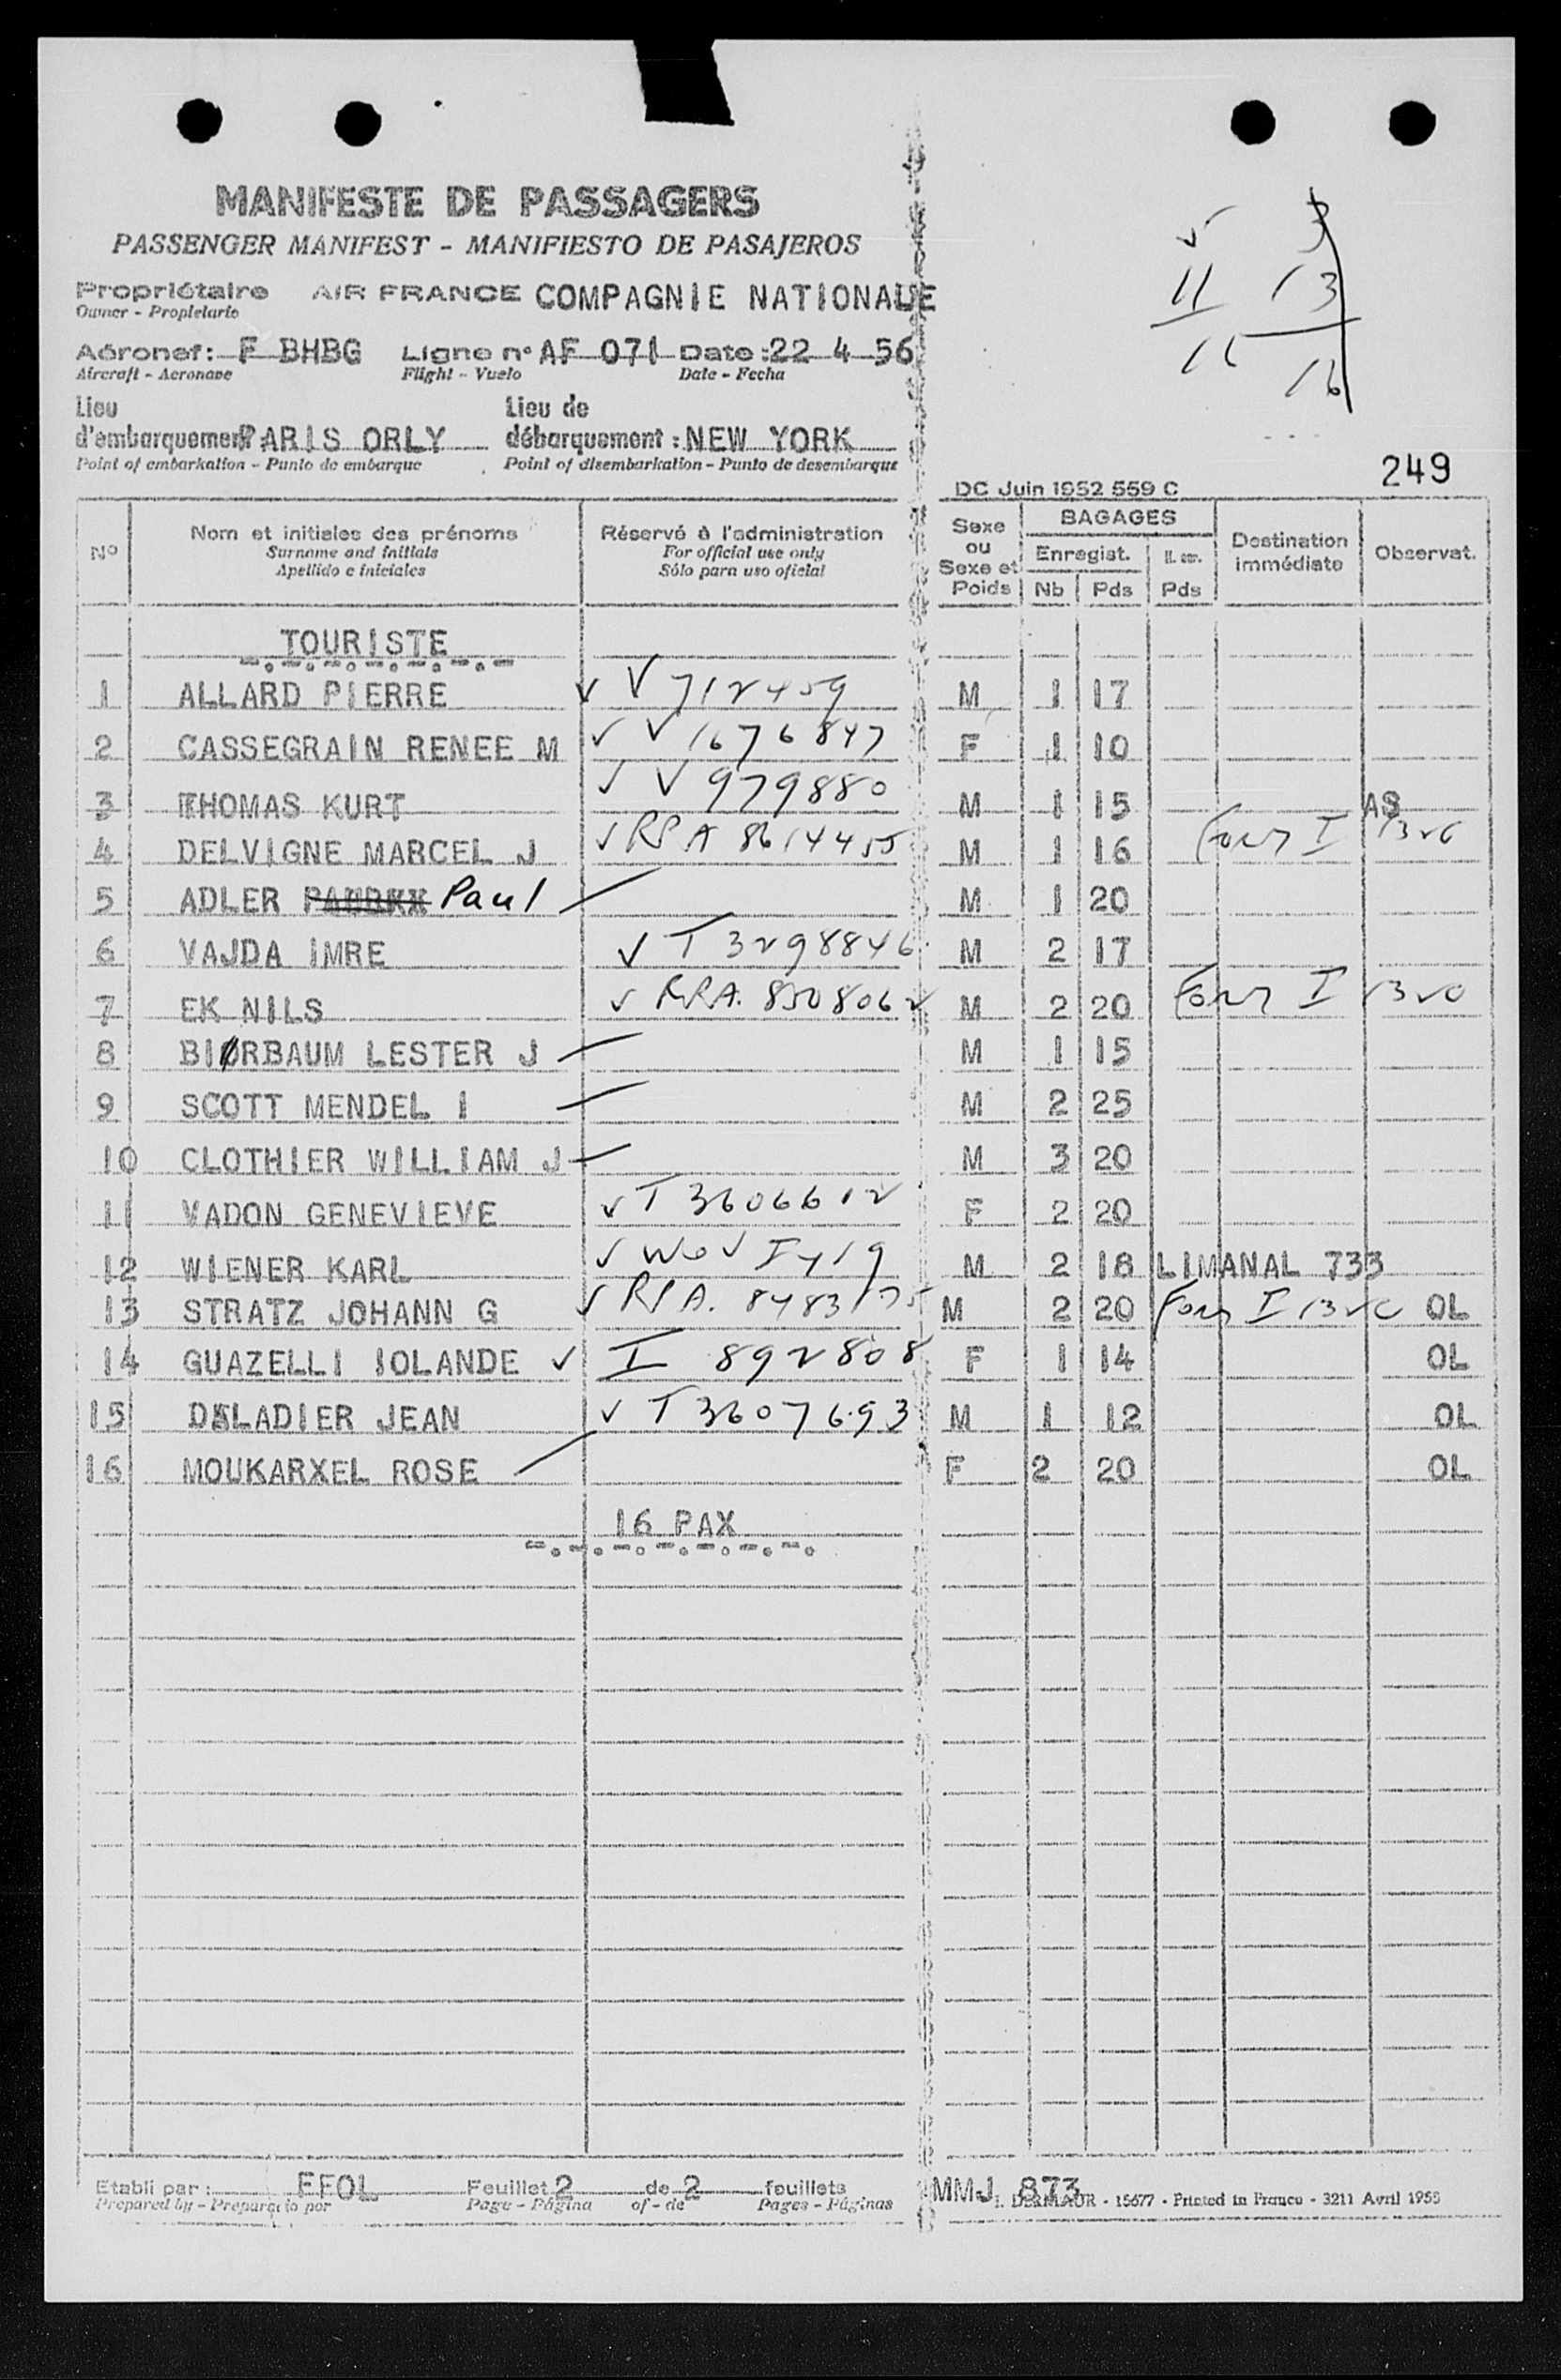 MANIFESTE DE PASSAGERS
PASSENGER MANIFEST - MANIFIESTO DE PASAJEROS
Propriétaire AIR FRANCE COMPAGNIE NATIONALE
Owner - Propietario
Aéronef: F BHBG Ligne n° AF 071 Date: 22 4 56
Aircraft - Aeronave Flight - Vuelo Date - Fecha
Lieu Lieu de
d'embarquement PARIS ORLY débarquement: NEW YORK
Point of embarkation - Punto de embarque Point of disembarkation - Punto de desembarque
5 3
11 13
16
16
249
DC Juin 1952 559 C
N° Nom et initiales des prénoms Réservé à l'administration Sexe ou Sexe et Poids BAGAGES Destination immédiate Observat.
Surname and initials For official use only Enregist.
Apellido e iniciales Sólo para uso oficial Nb Pds Pds
TOURISTE
1 ALLARD PIERRE V 712459 M 1 17
2 CASSEGRAIN RENEE M V 1676847 F 1 10
3 THOMAS KURT V 979880 M 1 15 AS
4 DELVIGNE MARCEL J 8614455 M 1 16 Form I
5 ADLER Paul M 1 20
6 VAJDA IMRE T 3298846 M 2 17
7 EK NILS M 2 20 Form I
8 BIRBAUM LESTER J M 1 15
9 SCOTT MENDEL I M 2 25
10 CLOTHIER WILLIAM J M 3 20
11 VADON GENEVIEVE T 3606612 F 2 20
12 WIENER KARL M 2 18 LIMANAL 733
13 STRATZ JOHANN G M 2 20 Form I OL
14 GUAZELLI IOLANDE I 892808 F 1 14 OL
15 DALADIER JEAN T 3607693 M 1 12 OL
16 MOUKARXEL ROSE F 2 20 OL
16 PAX
Etabli par: FFOL Feuillet 2 de 2 feuillets MMJ 873
Prepared by - Preparado por Page - Página of - de Pages - Páginas - 15677 - Printed in France - 3211 Avril 1955